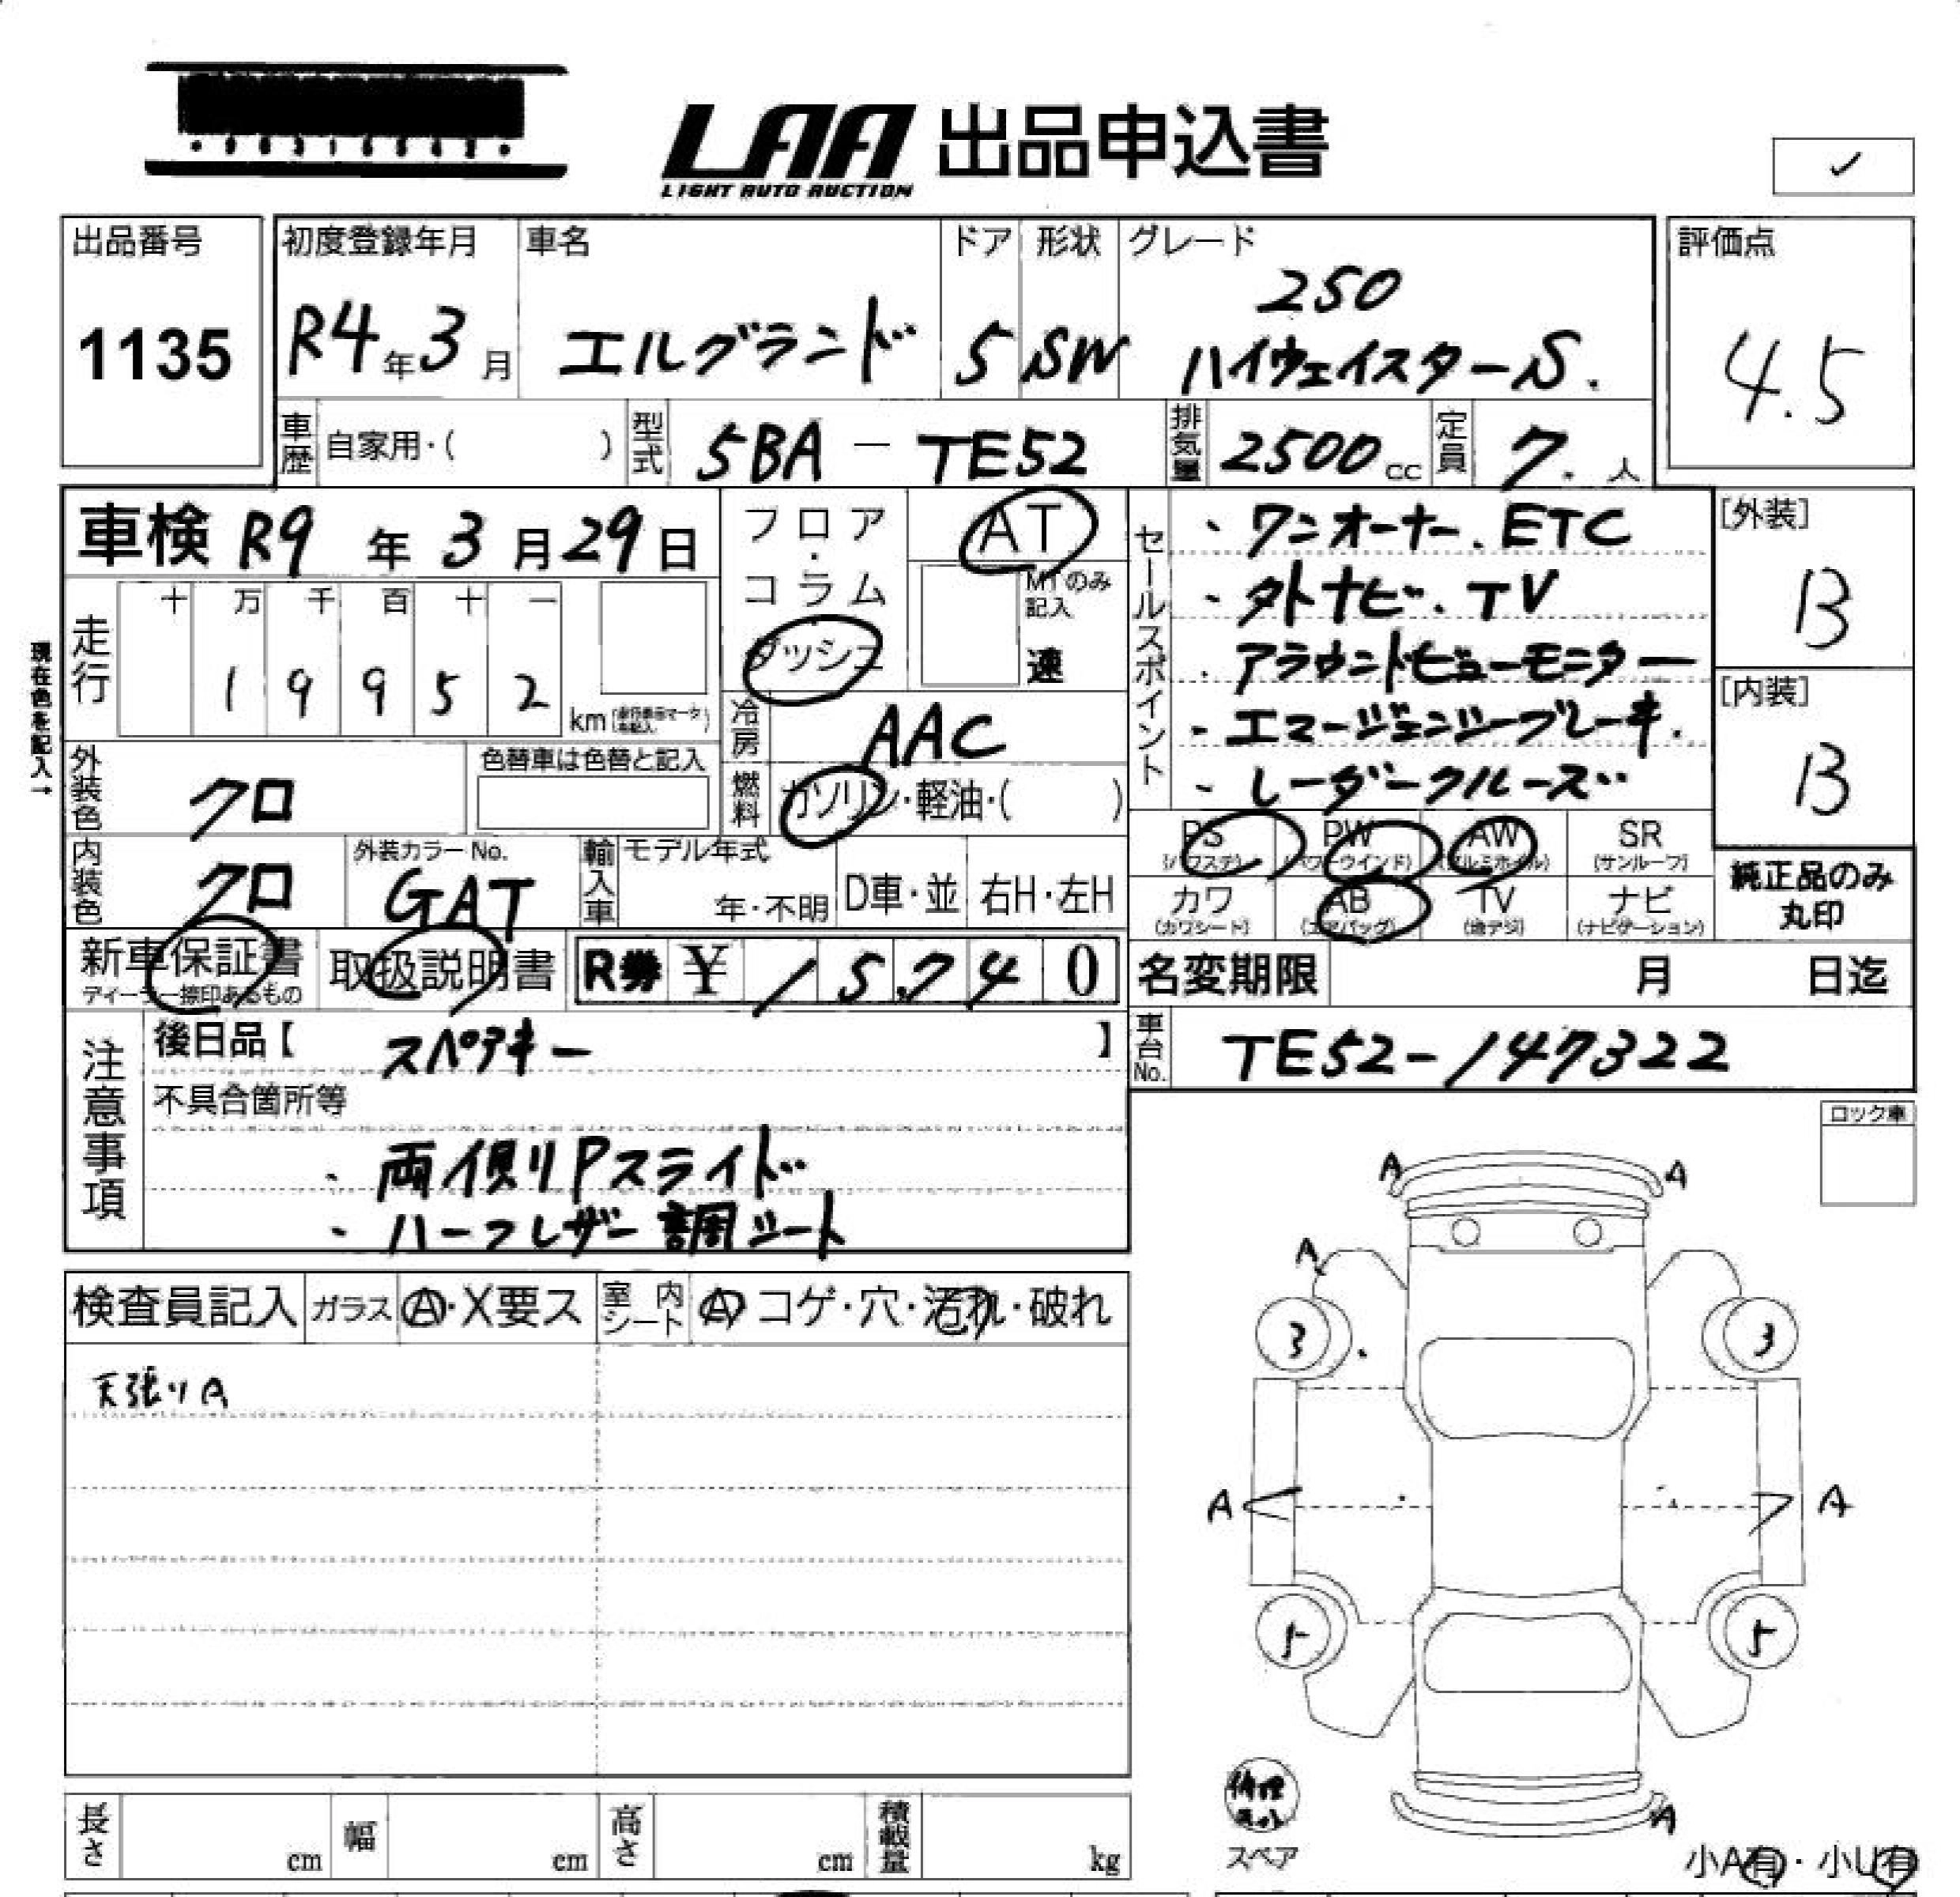 LAA 出品申込書
LIGHT AUTO AUCTION
✓
出品番号 初度登録年月 車名 ドア 形状 グレード 評価点
1135 R4年3月 エルグランド 5 SW 250 ハイウェイスターS. 4.5
車歴 自家用・( ) 型式 5BA - TE52 排気量 2500cc 定員 7.人
車検 R9年3月29日
フロア・コラム・ダッシュ
AT
MTのみ記入
速
セールスポイント
・ワンオーナー.ETC
・外ナビ.TV
・アラウンドビューモニター
・エマージェンシーブレーキ.
・レーダークルーズ
[外装]
B
[内装]
B
現在色を記入→
走行 十 万 千 百 十 一
1 9 9 5 2 km
冷房 AAC
燃料 ガソリン・軽油・( )
外装色 クロ 色替車は色替と記入
内装色 クロ 外装カラーNo. GAT
輸入車 モデル年式 年・不明 D車・並 右H・左H
PS (パワステ) PW (パワーウインド) AW (アルミホイル) SR (サンルーフ)
カワ (カワシート) AB (エアバッグ) TV (地デジ) ナビ (ナビゲーション)
純正品のみ丸印
新車保証書 ディーラー捺印あるもの 取扱説明書 R券 ¥ 15,740
名変期限 月 日迄
車台No. TE52-147322
注意事項
後日品【 スペアキー 】
不具合箇所等
・両側Pスライド
・ハーフレザー調シート
ロック車
検査員記入 ガラス A・X要ス 室内シート A コゲ・穴・汚れ・破れ
天張りA
A A
A
3 3
A A
5
A
スペア
小A有・小U有
長さ cm 幅 cm 高さ cm 積載量 kg